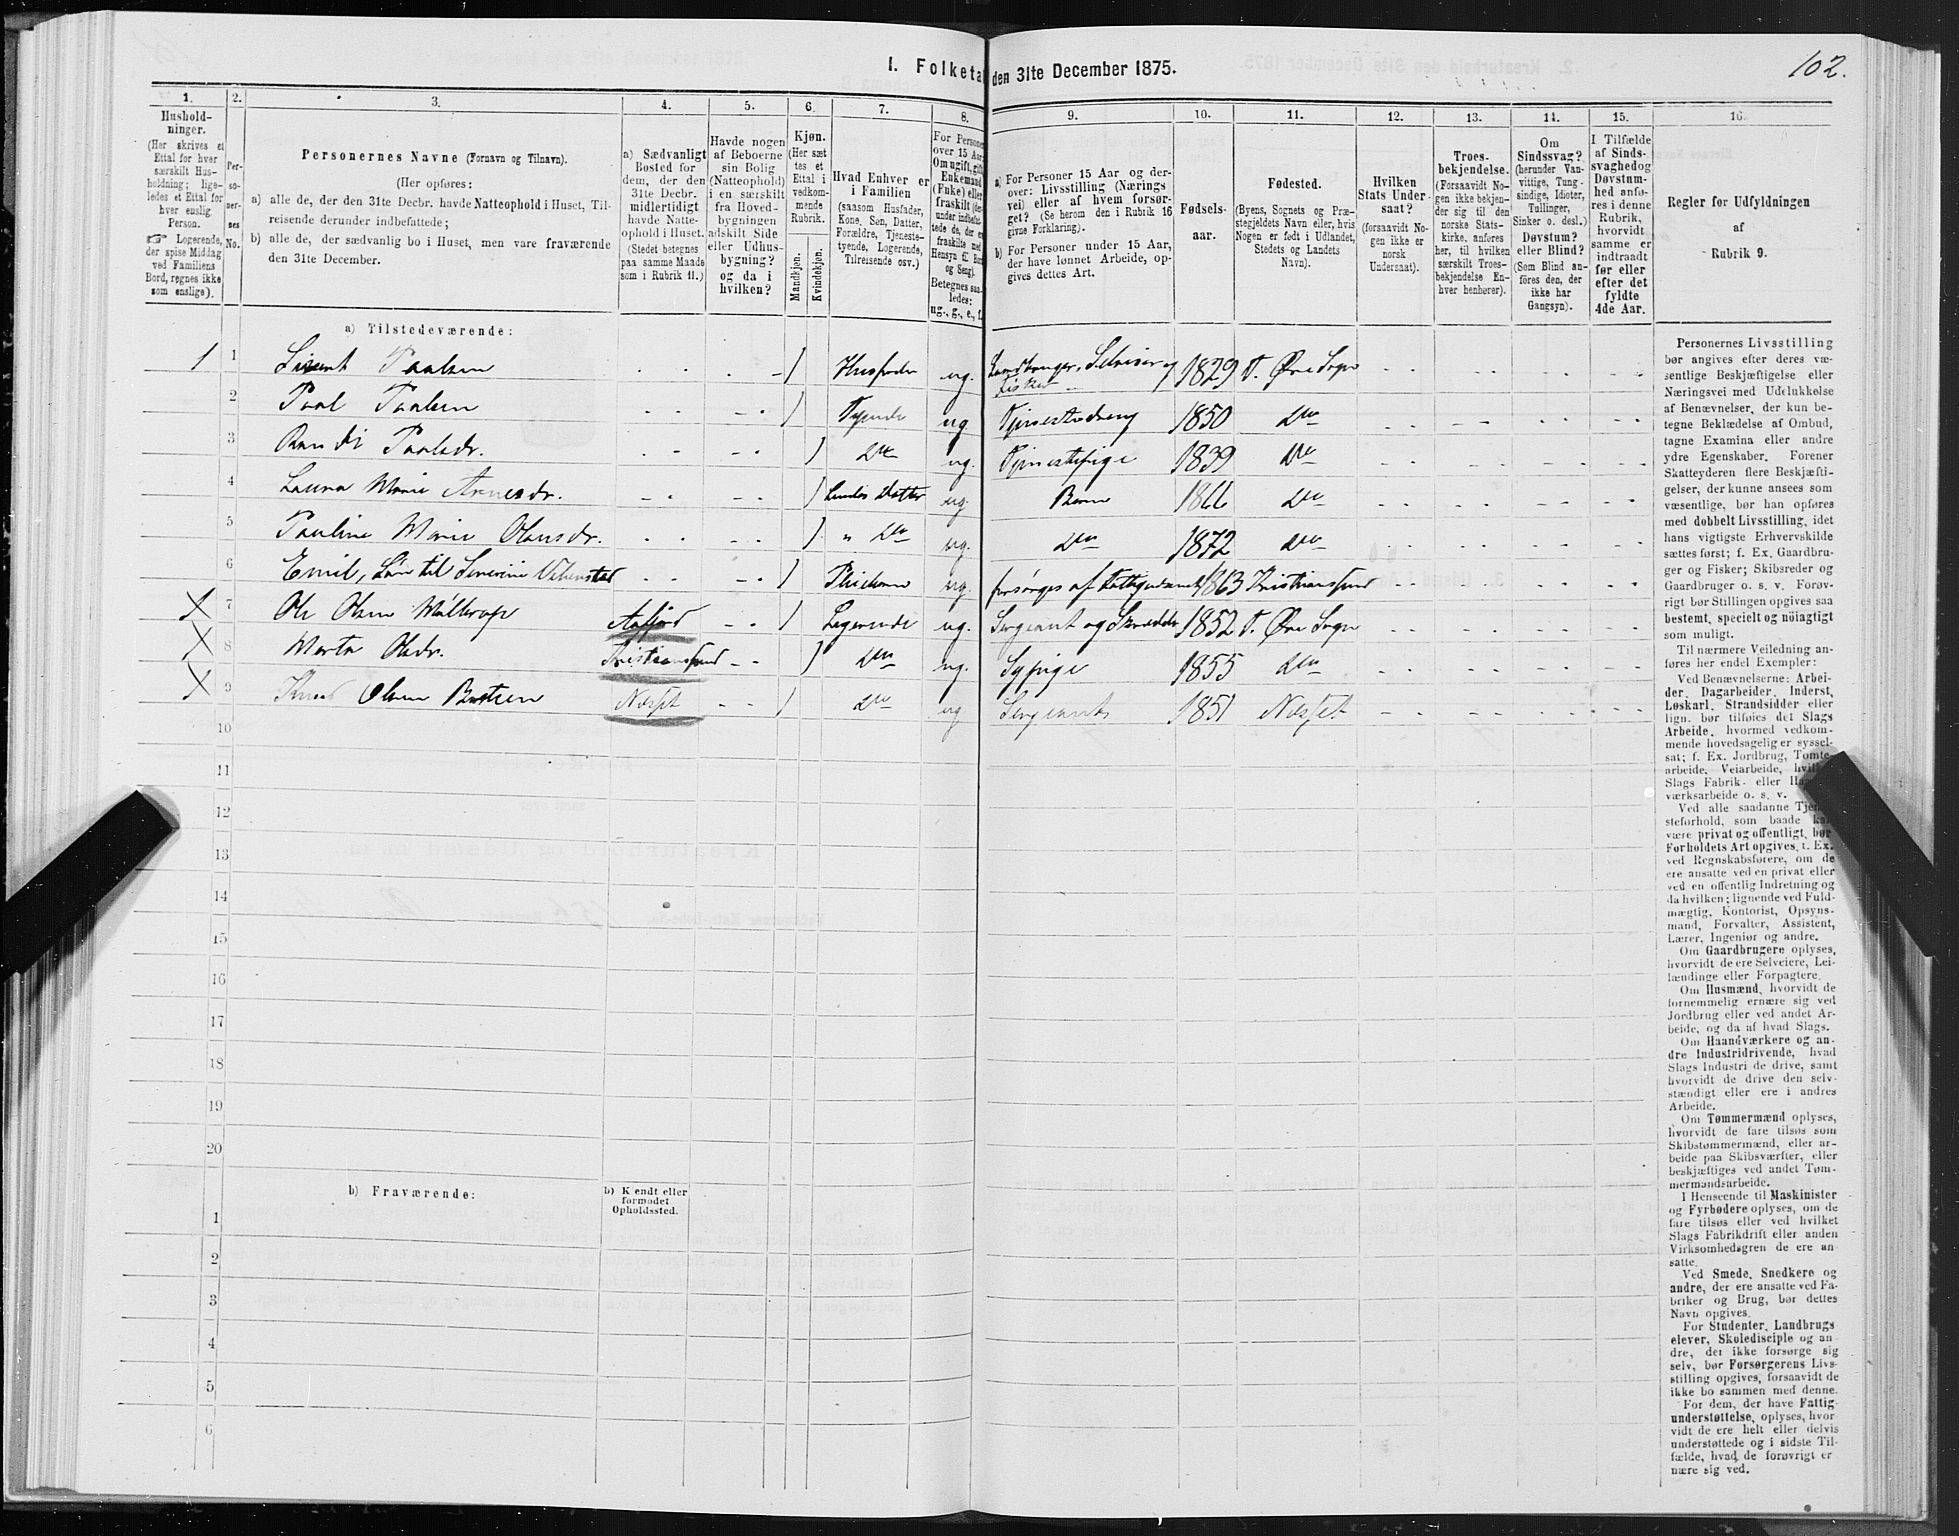 102.
1. Folketa
den 31te December 1875.
1.
2.
3.
4.
5.
6.
7.
8.
9.
10.
11.
12.
13.
14.
15.
16.
Hushold-
ninger.
(Her skrives et
Ettal for hver
særskilt Hus-
holdning; lige-
ledes et Ettal for
hver enslig
Person.
☞ Logerende,
der spise Middag
ved Familiens
Bord, regnes ikke
som enslige).
Per-
so-
ner-
nes
No.
Personernes Navne (Fornavn og Tilnavn).
(Her opføres:
a) alle de, der den 31te Decbr. havde Natteophold i Huset, Til-
reisende derunder indbefattede;
b) alle de, der sædvanlig bo i Huset, men vare fraværende
den 31te December.
a) Sædvanligt
Bosted for
dem, der den
31te Decbr.
midlertidigt
havde Natte-
ophold i Huset.
(Stedet betegnes
paa samme Maade
som i Rubrik 11.)
Havde nogen
af Beboerne
sin Bolig
(Natteophold)
i en særskilt
fra Hoved-
bygningen
adskilt Side
eller Udhus-
bygning?
og da i
hvilken?
Kjøn.
(Her sæt
tes et
Ettal i
vedkom-
mende
Rubrik.
Mandkjøn.
Kvindekjøn.
Hvad Enhver er
i Familien
(saasom Husfader,
Kone, Søn, Datter,
Forældre, Tjeneste-
tyende, Logerende,
Tilreisende osv.)
For Persone
over 15 Aar
Om ugift, gift
Enkemand
(Enke) eller
fraskilt (der
under indbefat-
tede de, der er
fraskilte med
Hensyn til Bord
og Seng).
Betegnes saa-
ledes:
ug., g., e., f.
a) For Personer 15 Aar og der-
over: Livsstilling (Nærings
vei) eller af hvem forsør-
get? (Se herom den i Rubrik 16
givne Forklaring).
b) For Personer under 15 Aar,
der have lønnet Arbeide, op-
gives dettes Art.
Fødsels-
aar.
Fødested.
(Byens, Sognets og Præ-
stegjeldets Navn eller, hvis
Nogen er født i Udlandet,
Stedets og Landets
Navn).
Hvilken
Stats Under-
saat?
(forsaavidt No-
gen ikke er
norsk
Undersaat).
Troes-
bekjendelse.
(Forsaavidt No-
gen ikke bekjen-
der sig til den
norske Stats-
kirke, anføres
her, til hvilken
særskilt Troes-
bekjendelse En-
hver henhører).
Om
Sindssvag?
(herunder Van-
vittige, Tung-
sindige, Idioter,
Tullinger,
Sinker o. desl.)
Døvstum?
eller Blind?
(Som Blind an-
føres den, der
ikke har
Gangsyn).
I Tilfælde
af Sinds-
svaghedog
Døvstum-
hed anfø-
res i denne
Rubrik,
hvorvidt
samme er
indtraadt
før eller
efter det
fyldte
4de Aar.
Regler for Udfyldningen
af
Rubrik 9.
a) Tilstedeværende:
1 1 Sivert Paalsen 1 Husfader ug. Landbruger, Selveier og Fisker 1829 T. Øre Sogn
2 Paal Paalsen 1 Tyende ug. Tjenestedreng 1850 Do
3 Randi Paalsdr. 1 Do ug. Tjenestepige 1839 Do
4 Laura Marie Arnesdr. 1 Datter ug. Barn 1866 Do
5 Pauline Marie Olausdr. 1 Do ug. Do 1872 Do
6 Emil, Søn til Severine 1 Pleiebarn ug. forsørges af Fattigvæsnet 1863 Kristiansund
1 7 Ole Olsen Aafjord 1 Logerende ug. Sergeant og Skrædder 1852 T. Øre Sogn
1 8 Marta Olsdr. Kristiansund 1 Do ug. Sypige 1855 Do
1 9 Knud Olsen Næsset 1 Do ug Sergeant 1851 Næsset
10
11
12
13
14
15
16
17
18
19
20
b) Fraværende:
b) Kjendt eller
formodet
Opholdssted.
1
2
3
4
5
6
Personernes Livsstilling
bør angives efter deres væ-
sentlige Beskjæftigelse eller
Næringsvei med Udelukkelse
af Benævnelser, der kun be-
tegne Beklædelse af Ombud,
tagne Examina eller andre
ydre Egenskaber. Forener
Skatteyderen flere Beskjæfti-
gelser, der kunne ansees som
væsentlige, bør han opføres
med dobbelt Livsstilling, idet
hans vigtigste Erhvervskilde
sættes først; f. Ex. Gaardbru-
ger og Fisker; Skibsreder og
Gaardbruger o. s. v. Forøv-
rigt bør Stillingen opgives saa
bestemt, specielt og nöiagtigt
som muligt.
Til nærmere Veiledning an-
føres her endel Exempler:
Ved Benævnelserne: Arbei-
der, Dagarbeider, Inderst,
Løskarl, Strandsidder eller
lign. bør tilføies det Slags
Arbeide, hvormed vedkom-
mende hovedsagelig er syssel-
sat; f. Ex. Jordbrug, Tomte-
arbeide, Veiarbeide, hvilket
Slags Fabrik- eller Haand-
værksarbeide o. s. v.
Ved alle saadanne Tjene-
steforhold, som baade kan
være privat og offentligt, bør
Forholdets Art opgives, t. Ex.
ved Regnskabsførere, om de
ere ansatte ved en privat eller
ved en offentlig Indretning og
da hvilken; lignende ved Fuld-
mægtig, Kontorist, Opsyns-
mand, Forvalter, Assistent,
Lærer, Ingeniør og andre.
Om Gaardbrugere oplyses,
hvorvidt de ere Selveiere, Lei-
lændinge eller Forpagtere.
Om Husmænd, hvorvidt de
fornemmelig ernære sig ved
Jordbrug eller ved andet Ar-
beide, og da af hvad Slags.
Om Haandværkere og an-
dre Industridrivende, hvad
Slags Industri de drive, samt
hvorvidt de drive den selv-
stændigt eller ere i andres
Arbeide.
Om Tømmermænd oplyses,
hvorvidt de fare tilsøs som
Skibstømmermænd, eller ar-
beide paa Skibsværfter, eller
beskjæftiges ved andet Tøm-
mermandsarbeide.
I Henseende til Maskinister
og Fyrbødere oplyses, om de
fare tilsøs eller ved hvilket
Slags Fabrikdrift eller anden
Virksomhedsgren de ere an-
satte.
Ved Smede, Snedkere og
andre, der ere ansatte ved Fa-
briker og Brug, bør dettes
Navn opgives.
For Studenter, Landbrugs
elever, Skoledisciple og an-
dre, der ikke forsørge sig
selv, bør Forsørgerens Livs-
stilling opgives, forsaavidt de
ikke bo sammen med denne.
For dem, der have Fattig-
understøttelse, oplyses, hvor
vidt de ere helt eller delvis
understøttede og i sidste Til-
fælde, hvad de forøvrigt er
nære sig ved.